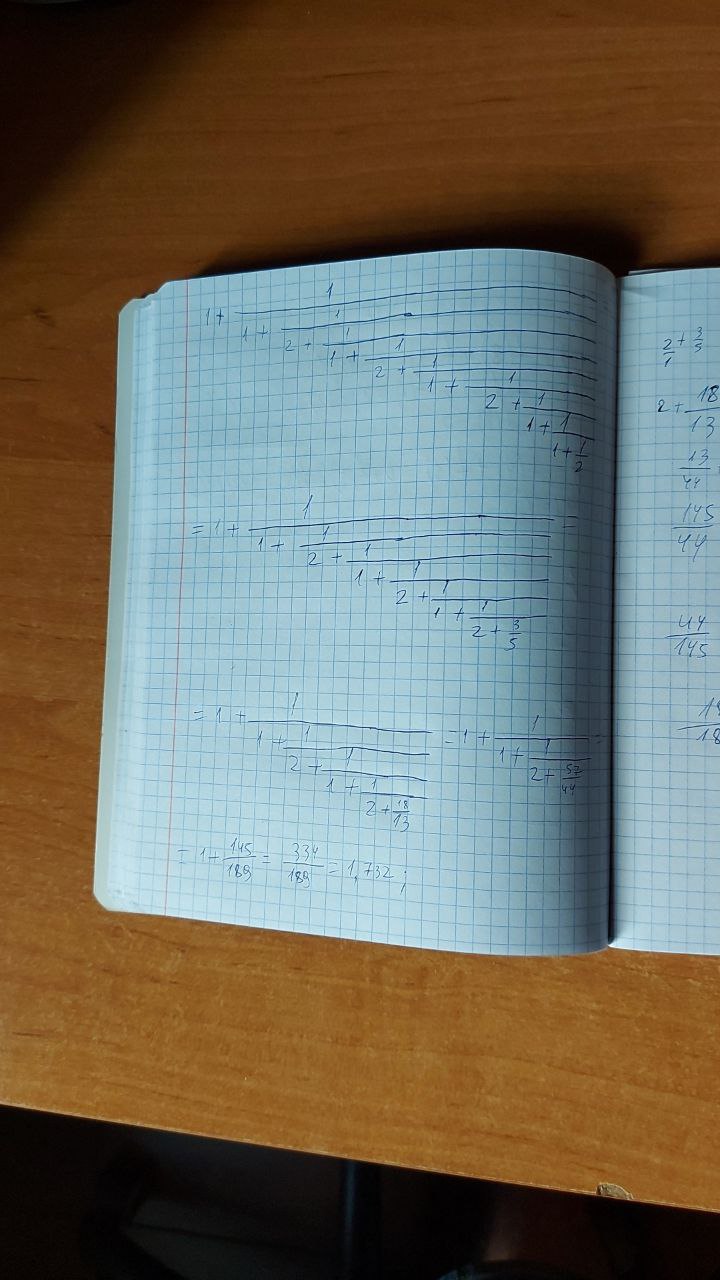 1 + 1
1 + 1
2 + 1
1 + 1
2 + 1
1 + 1
2 + 1
1 + 1
1 + 1/2
= 1 + 1 =
1 + 1
2 + 1
1 + 1
2 + 1
1 + 1
2 + 3/5
= 1 + 1 = 1 + 1 =
1 + 1 1 + 1
2 + 1 2 + 57/44
1 + 1
2 + 18/13
= 1 + 145/189 = 334/189 = 1,732 ;
2/1 + 3/5
2 + 18/13
13/44
145/44
44/145